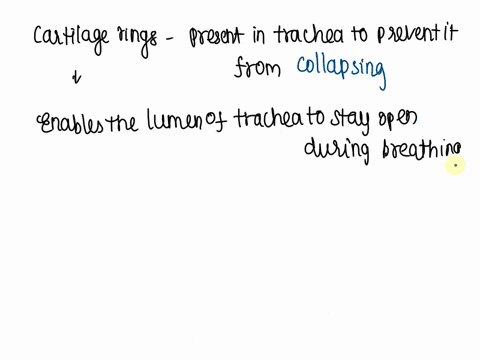 Cartilage rings - present in trachea to prevent it
from collapsing
Enables the lumen of trachea to stay open
during breathing